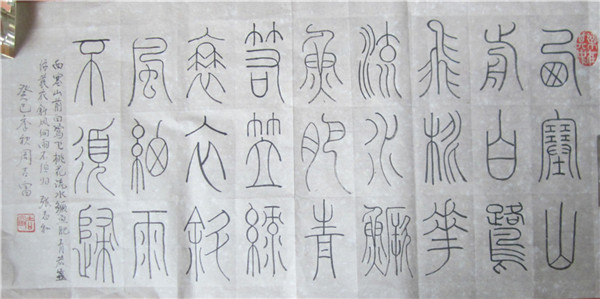 西塞山
前白鷺
飛桃華
流水鱖
魚肥青
箬笠綠
蓑衣斜
風細雨
不須歸
西塞山前白鷺飛桃花流水鱖魚肥青箬笠
綠蓑衣斜風細雨不須歸 張志和
癸巳季秋周吉富